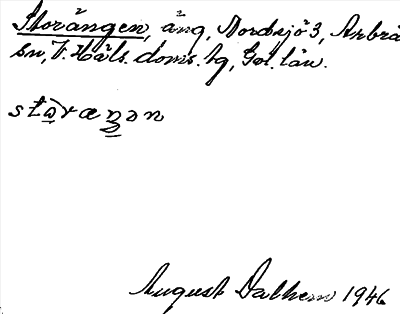 Storängen, äng, Nordsjö 3, Arbrå
sn, V. Häls. doms. tg, Gvl. län.
August Dalhem 1946